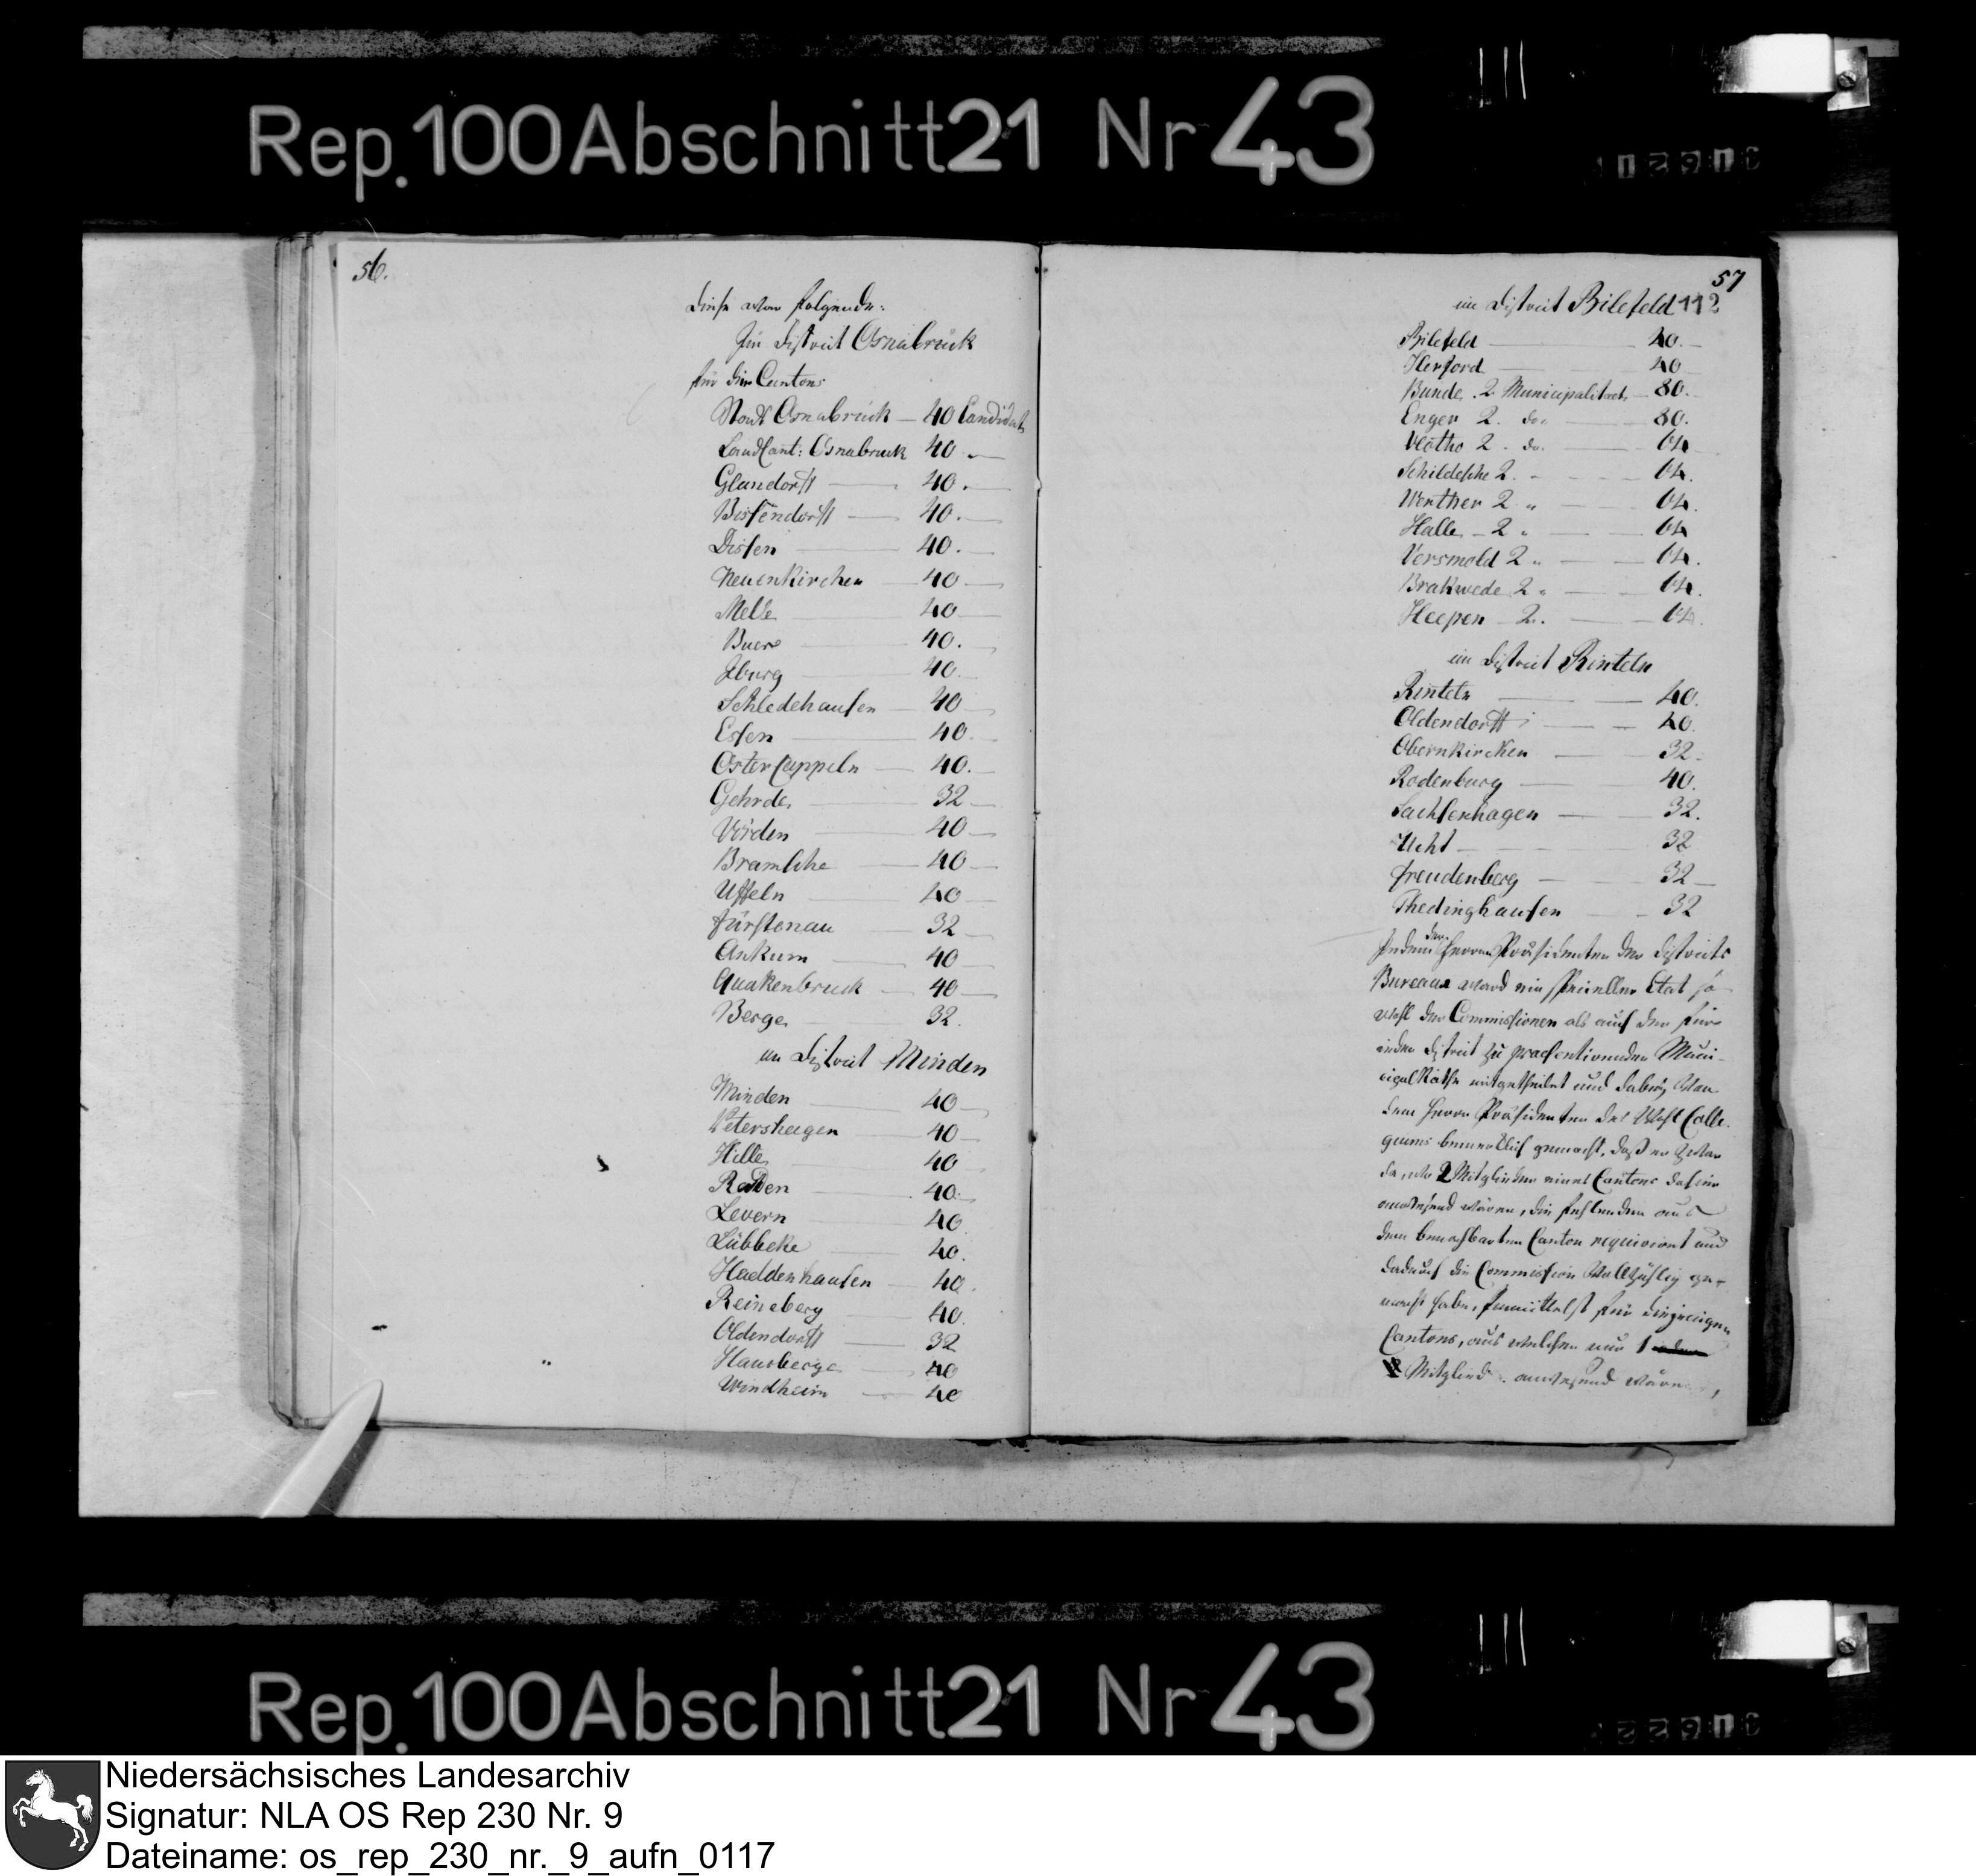 Rep. 100 Abschnitt 21 Nr 43
56.
Diese war folgende:
Im District Osnabrück
für die Cantons
Stadt Osnabrück — 40 Candidat
LandCant: Osnabruck 40 . —
Glandorff — 40 . —
Bissendorff — 40 . —
Dissen — 40 . —
Neuenkirchen — 40 —
Melle — 40 —
Buer — 40 . —
Iburg — 40 . —
Schledehausen — 40 —
Essen — 40 . —
OsterCappeln — 40 . —
Gehrde — 32 —
Vörden — 40 —
Bramsche — 40 —
Uffeln — 40 —
Fürstenau — 32 —
Ankum — 40 —
Quakenbruck — 40 —
Berge — 32 .
im District Minden
Minden — 40 —
Petershagen — 40 —
Hille — 40
Raden — 40 . —
Levern 40
Lübbeke 40 .
Haddenhausen — 40 .
Reineberg 40 .
Oldendorff — 32
Hausberge 40
Windheim — 40
57
112
im District Bilefeld
Bilefeld — 40 . —
Herford — 40 —
Bunde . 2 Municipalitaet — 80 .
Enger 2 . do. — 80 .
Vlotho 2 . do. — 64
Schildesche 2 . — 64 .
Werther 2 " — 64 .
Halle — 2 " — 64
Versmold 2 " — 64 .
Brakwede 2 " — 64 .
Heepen — 2 . — 64 .
im District Rinteln
Rinteln — 40 .
Oldendorff — 40
Obernkirchen — 32 .
Rodenburg — 40 .
Sachsenhagen — 32 .
Ucht — 32
Freudenberg — 32 —
Thedinghausen — 32
Jedem der Herren Präsidenten der Districts
Bureaus ward ein specieller Etat so
wohl der Commissionen als auch der für
jeden District zu praesentirenden Muni-
cipalRäthe mitgetheilt und dabey von
dem Herrn Präsidenten des WahlColle-
giums bemerklich gemacht, daß er zwar
da, wo 2 Mitglieder eines Cantons dahier
anwesend wären, die fehlenden aus
dem benachbarten Canton requirirt und
dadurch die Commission vollzählig ge-
macht habe,
für diejenigen
Cantons, aus welchen nur 1
Mitglied anwesend wären,
Rep. 100 Abschnitt 21 Nr 43
Niedersächsisches Landesarchiv
Signatur: NLA OS Rep 230 Nr. 9
Dateiname: os_rep_230_nr._9_aufn_0117